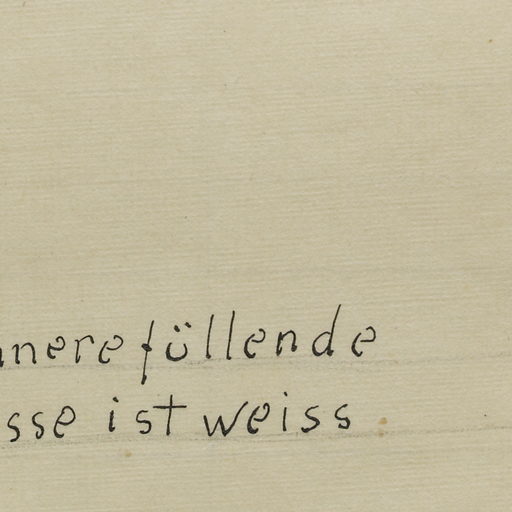 nnere füllende
sse ist weiss